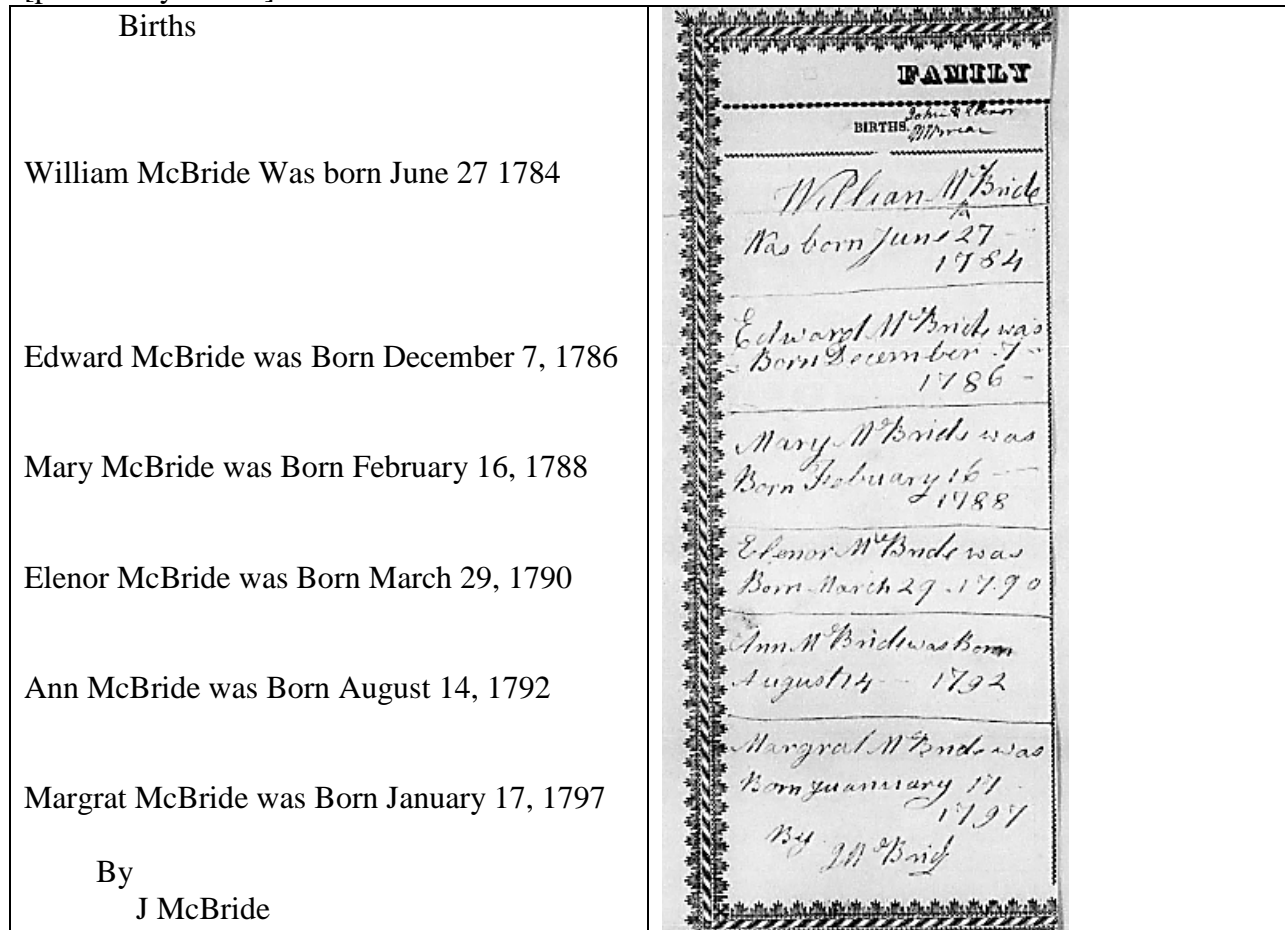 Births
William McBride Was born June 27 1784
Edward McBride was Born December 7, 1786
Mary McBride was Born February 16, 1788
Elenor McBride was Born March 29, 1790
Ann McBride was Born August 14, 1792
Margrat McBride was Born January 17, 1797
By
J McBride
FAMILY
John & Elenor
BIRTHS.
William McBride
Was born June 27
1784
Edward McBride was
Born December 7
1786
Mary McBride was
Born Febuary 16
1788
Elenor McBride was
Born March 29 1790
Ann McBride was Born
August 14 1792
Margrat McBride was
Born Juanuary 17
1797
By
J McBride